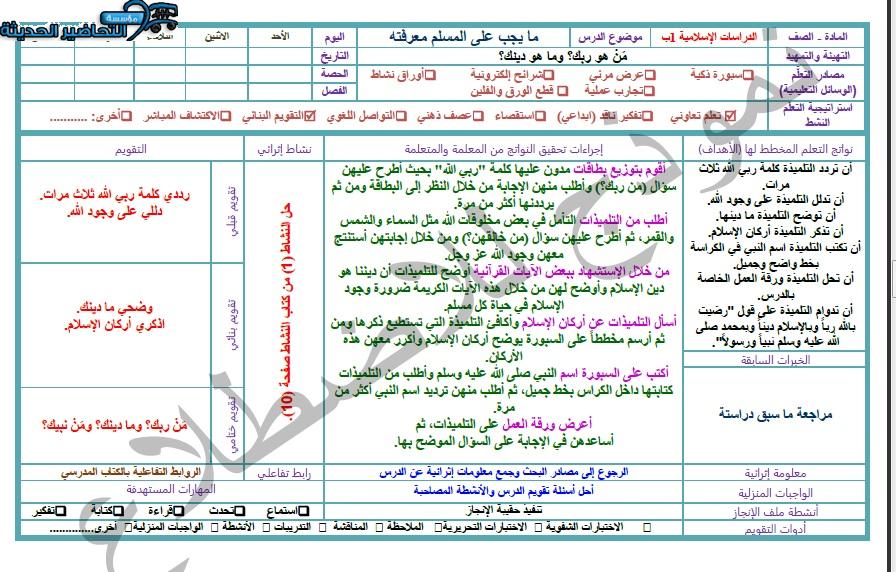 مؤسسة
التحاضير الحديثة
المادة - الصف
الدراسات الإسلامية 1ب
موضوع الدرس
ما يجب على المسلم معرفته
اليوم
الأحد
الاثنين
التهيئة والتمهيد
مَنْ هو ربك؟ وما هو دينك؟
التاريخ
مصادر التعلم
(الوسائل التعليمية)
سبورة ذكية
عرض مرئي
شرائح إلكترونية
أوراق نشاط
تجارب عملية
قطع الورق والفلين
الحصة
الفصل
استراتيجية التعلم
النشط
تعلم تعاوني
تفكير ناقد (ابداعي)
استقصاء
عصف ذهني
التواصل اللغوي
التقويم البنائي
الاكتشاف المباشر
أخرى: ...........
نواتج التعلم المخطط لها (الأهداف)
أن تردد التلميذة كلمة ربي الله ثلاث
مرات.
أن تدلل التلميذة على وجود الله.
أن توضح التلميذة ما دينها.
أن تذكر التلميذة أركان الإسلام.
أن تكتب التلميذة اسم النبي في الكراسة
بخط واضح وجميل.
أن تحل التلميذة ورقة العمل الخاصة
بالدرس.
أن تداوم التلميذة على قول "رضيت
بالله رباً وبالإسلام ديناً وبمحمد صلى
الله عليه وسلم نبياً ورسولاً".
الخبرات السابقة
مراجعة ما سبق دراستة
إجراءات تحقيق النواتج من المعلمة والمتعلمة
أقوم بتوزيع بطاقات مدون عليها كلمة "ربي الله" بحيث أطرح عليهن
سؤال (من ربك؟) وأطلب منهن الإجابة من خلال النظر إلى البطاقة ومن ثم
يرددنها أكثر من مرة.
أطلب من التلميذات التأمل في بعض مخلوقات الله مثل السماء والشمس
والقمر، ثم أطرح عليهن سؤال (من خالقهن؟) ومن خلال إجابتهن أستنتج
معهن وجود الله عز وجل.
من خلال الإستشهاد ببعض الآيات القرآنية أوضح للتلميذات أن ديننا هو
دين الإسلام وأوضح لهن من خلال هذه الآيات الكريمة ضرورة وجود
الإسلام في حياة كل مسلم.
أسأل التلميذات عن أركان الإسلام وأكافئ التلميذة التي تستطيع ذكرها ومن
ثم أرسم مخططاً على السبورة يوضح أركان الإسلام وأكرر معهن هذة
الأركان.
أكتب على السبورة اسم النبي صلى الله عليه وسلم وأطلب من التلميذات
كتابتها داخل الكراس بخط جميل، ثم أطلب منهن ترديد اسم النبي أكثر من
مرة.
أعرض ورقة العمل على التلميذات، ثم
أساعدهن في الإجابة على السؤال الموضح بها.
نشاط إثرائي
حل النشاط (1) من كتاب النشاط صفحة (10).
التقويم
تقويم قبلي
رددي كلمة ربي الله ثلاث مرات.
دللي على وجود الله.
تقويم بنائي
وضحي ما دينك.
اذكري أركان الإسلام.
تقويم ختامي
مَنْ ربك؟ وما دينك؟ ومَنْ نبيك؟
معلومة إثرائية
الرجوع إلى مصادر البحث وجمع معلومات إثرائية عن الدرس
رابط تفاعلي
الروابط التفاعلية بالكتاب المدرسي
الواجبات المنزلية
أحل أسئلة تقويم الدرس والأنشطة المصاحبة
المهارات المستهدفة
أنشطة ملف الإنجاز
تنفيذ حقيبة الإنجاز
استماع
تحدث
قراءة
كتابة
تفكير
أدوات التقويم
الاختبارات الشفوية
الاختبارات التحريرية
الملاحظة
المناقشة
التدريبات
الأنشطة
الواجبات المنزلية
أخرى................
نموذج للاطلاع